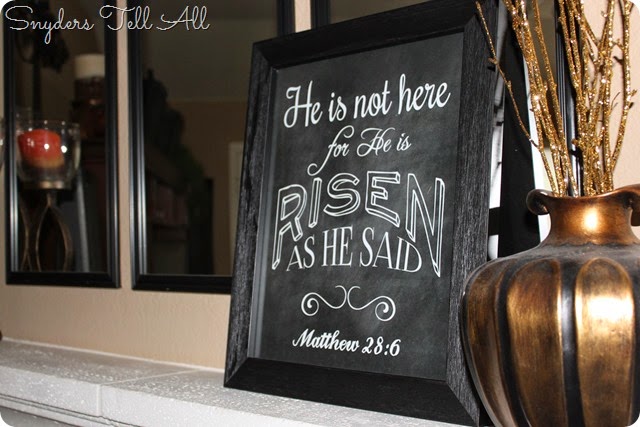 Snyders Tell All
He is not here
for He is
RISEN
AS HE SAID
Matthew 28:6